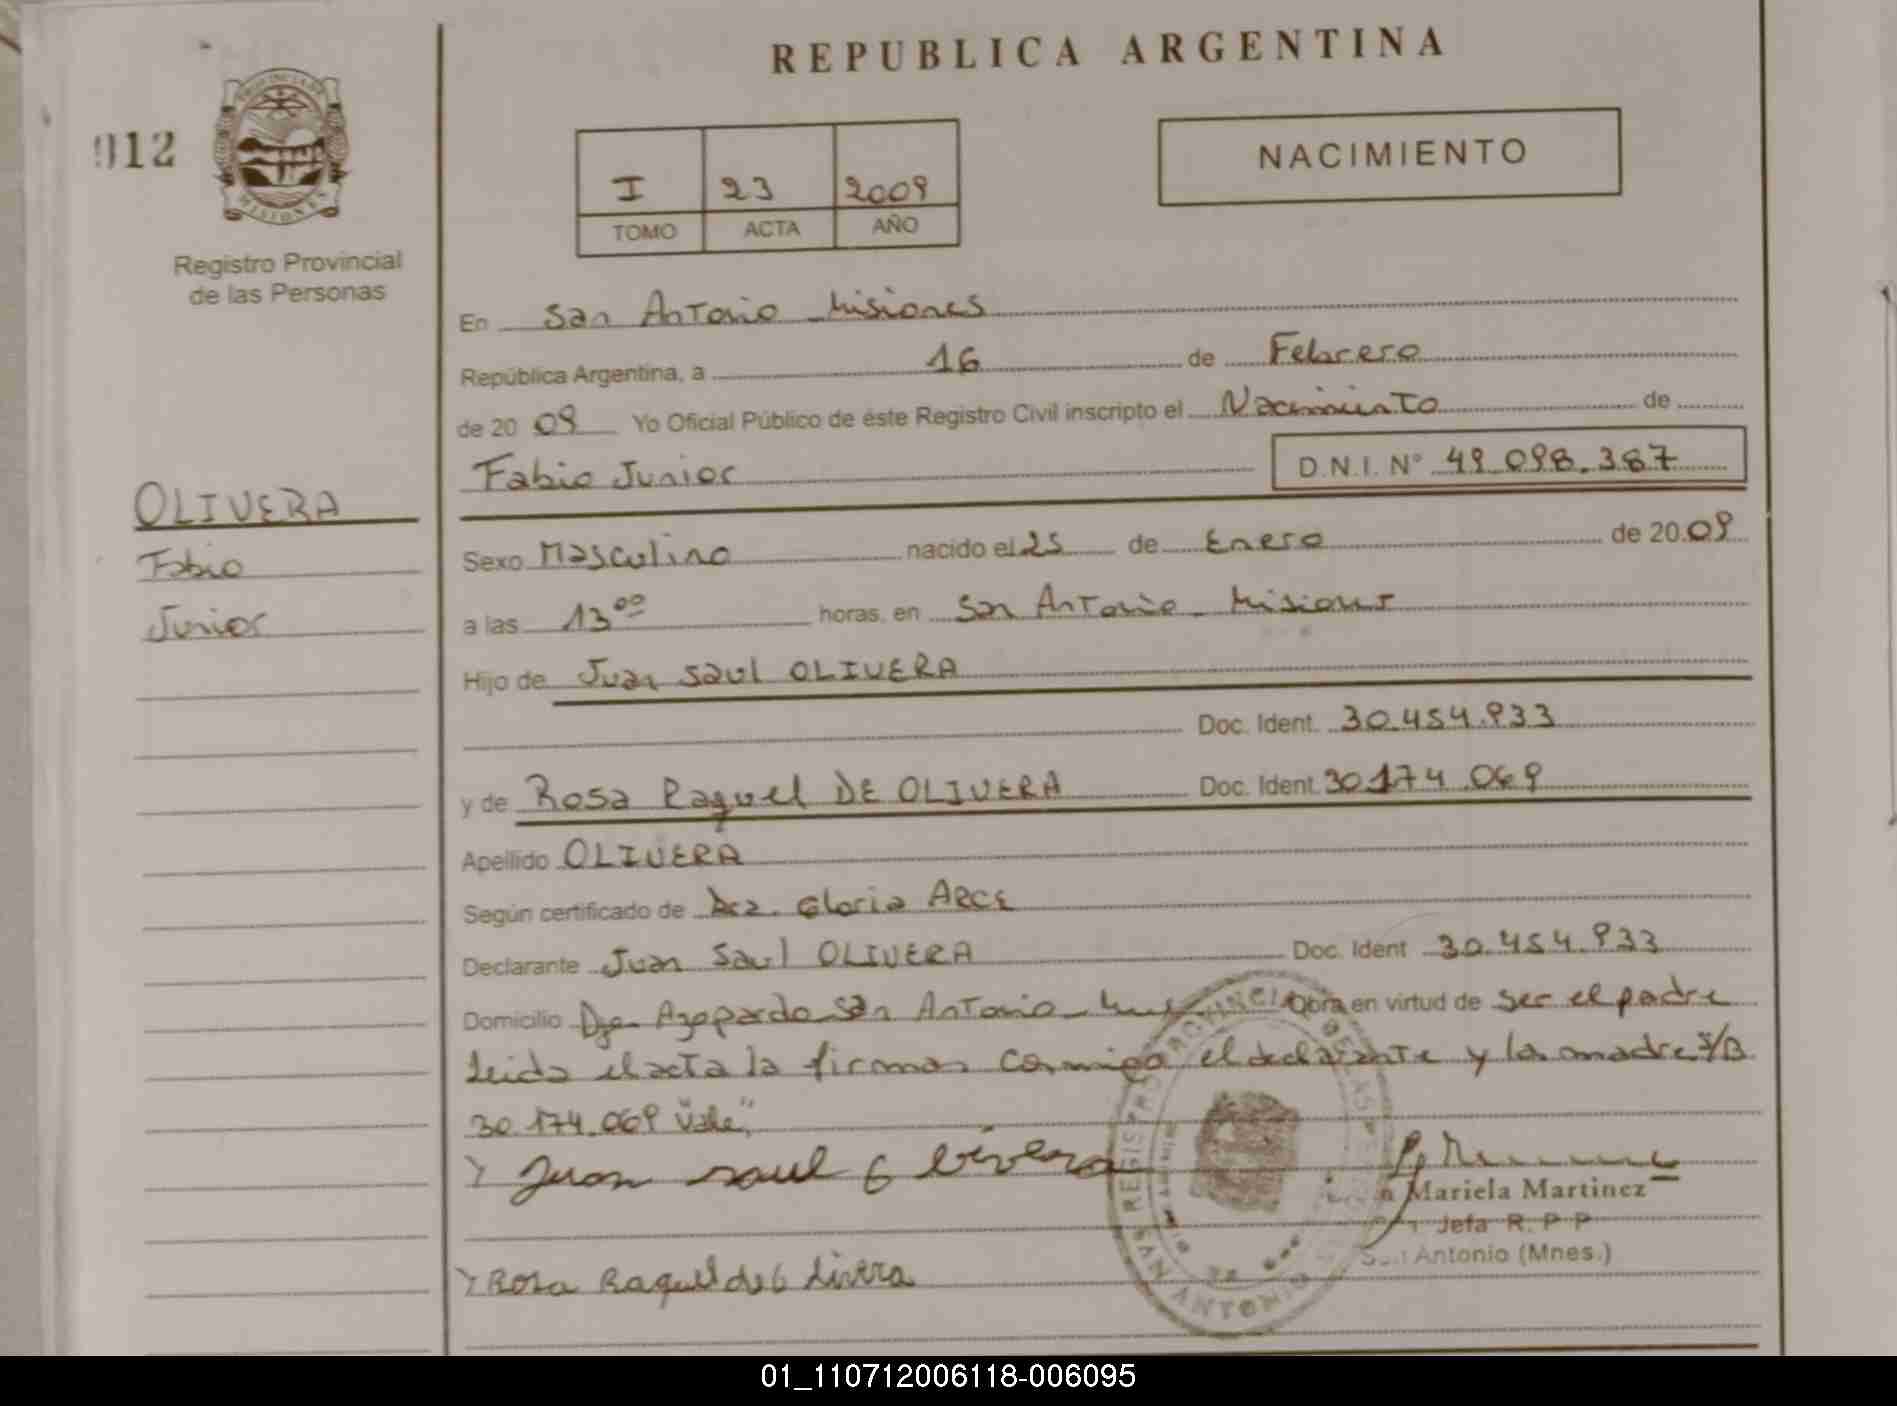 REPUBLICA ARGENTINA
912
PROVINCIA DE
MISIONES
Registro Provincial
de las Personas
I 23 2009
TOMO ACTA AÑO
NACIMIENTO
En San Antonio - Misiones
República Argentina, a 16 de Febrero
de 20 09 Yo Oficial Público de éste Registro Civil inscripto el Nacimiento de
Fabio Junior D.N.I. N° 49.098.387
OLIVERA
Fabio
Junior
Sexo Masculino nacido el 25 de Enero de 20 09
a las 13 00 horas, en San Antonio - Misiones
Hijo de Juan Saul OLIVERA
Doc. Ident. 30.454.933
y de Rosa Raquel DE OLIVERA Doc. Ident. 30174.069
Apellido OLIVERA
Según certificado de Dra. Gloria ARCE
Declarante Juan Saul OLIVERA Doc. Ident 30.454.933
Domicilio Azopardo San Antonio - Obra en virtud de ser el padre
Leida el acta la firman conmigo el declarante y la madre S/B
30.174.069 "Vale"
Juan saul olivera
Mariela Martinez
Jefa R. P P
San Antonio (Mnes.)
Rosa Raquel de olivera
SAN ANTONIO
01_110712006118-006095